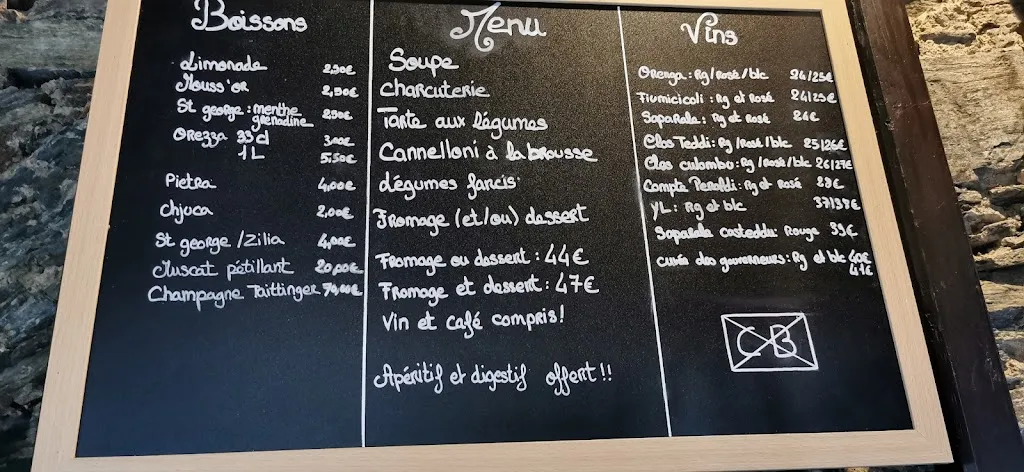 Boissons
Limonade 2,50€
Mouss'or 2,50€
St george : menthe 2,50€
grenadine
Orezza 33 cl 3,00€
1 L 5,50€
Pietra 4,00€
Chjuca 2,00€
St george / Zilia 4,00€
Muscat pétillant 20,00€
Champagne Taittinger
Menu
Soupe
charcuterie
Tarte aux légumes
Cannelloni à la brousse
dégumes farcis
Fromage (et/ou) dessert
Fromage ou dessert : 44€
Fromage et dessert : 47€
Vin et café compris!
Apéritif et digestif offert !!
Vins
Orenga : Rg/rosé/blc 24/25€
Fiumicicoli : Rg et Rosé 24/25€
Saparale : Rg et Rosé 26€
Clos Teddi : Rg/Rosé/blc 25/26€
Clos culombu : Rg/Rosé/blc 26/27€
Compte Peraldi : Rg et Rosé 28€
YL : Rg et blc 37/38€
Saparale casteddu Rouge 39€
cuvée des gouverneurs : Rg et blc 40€
41€
CB